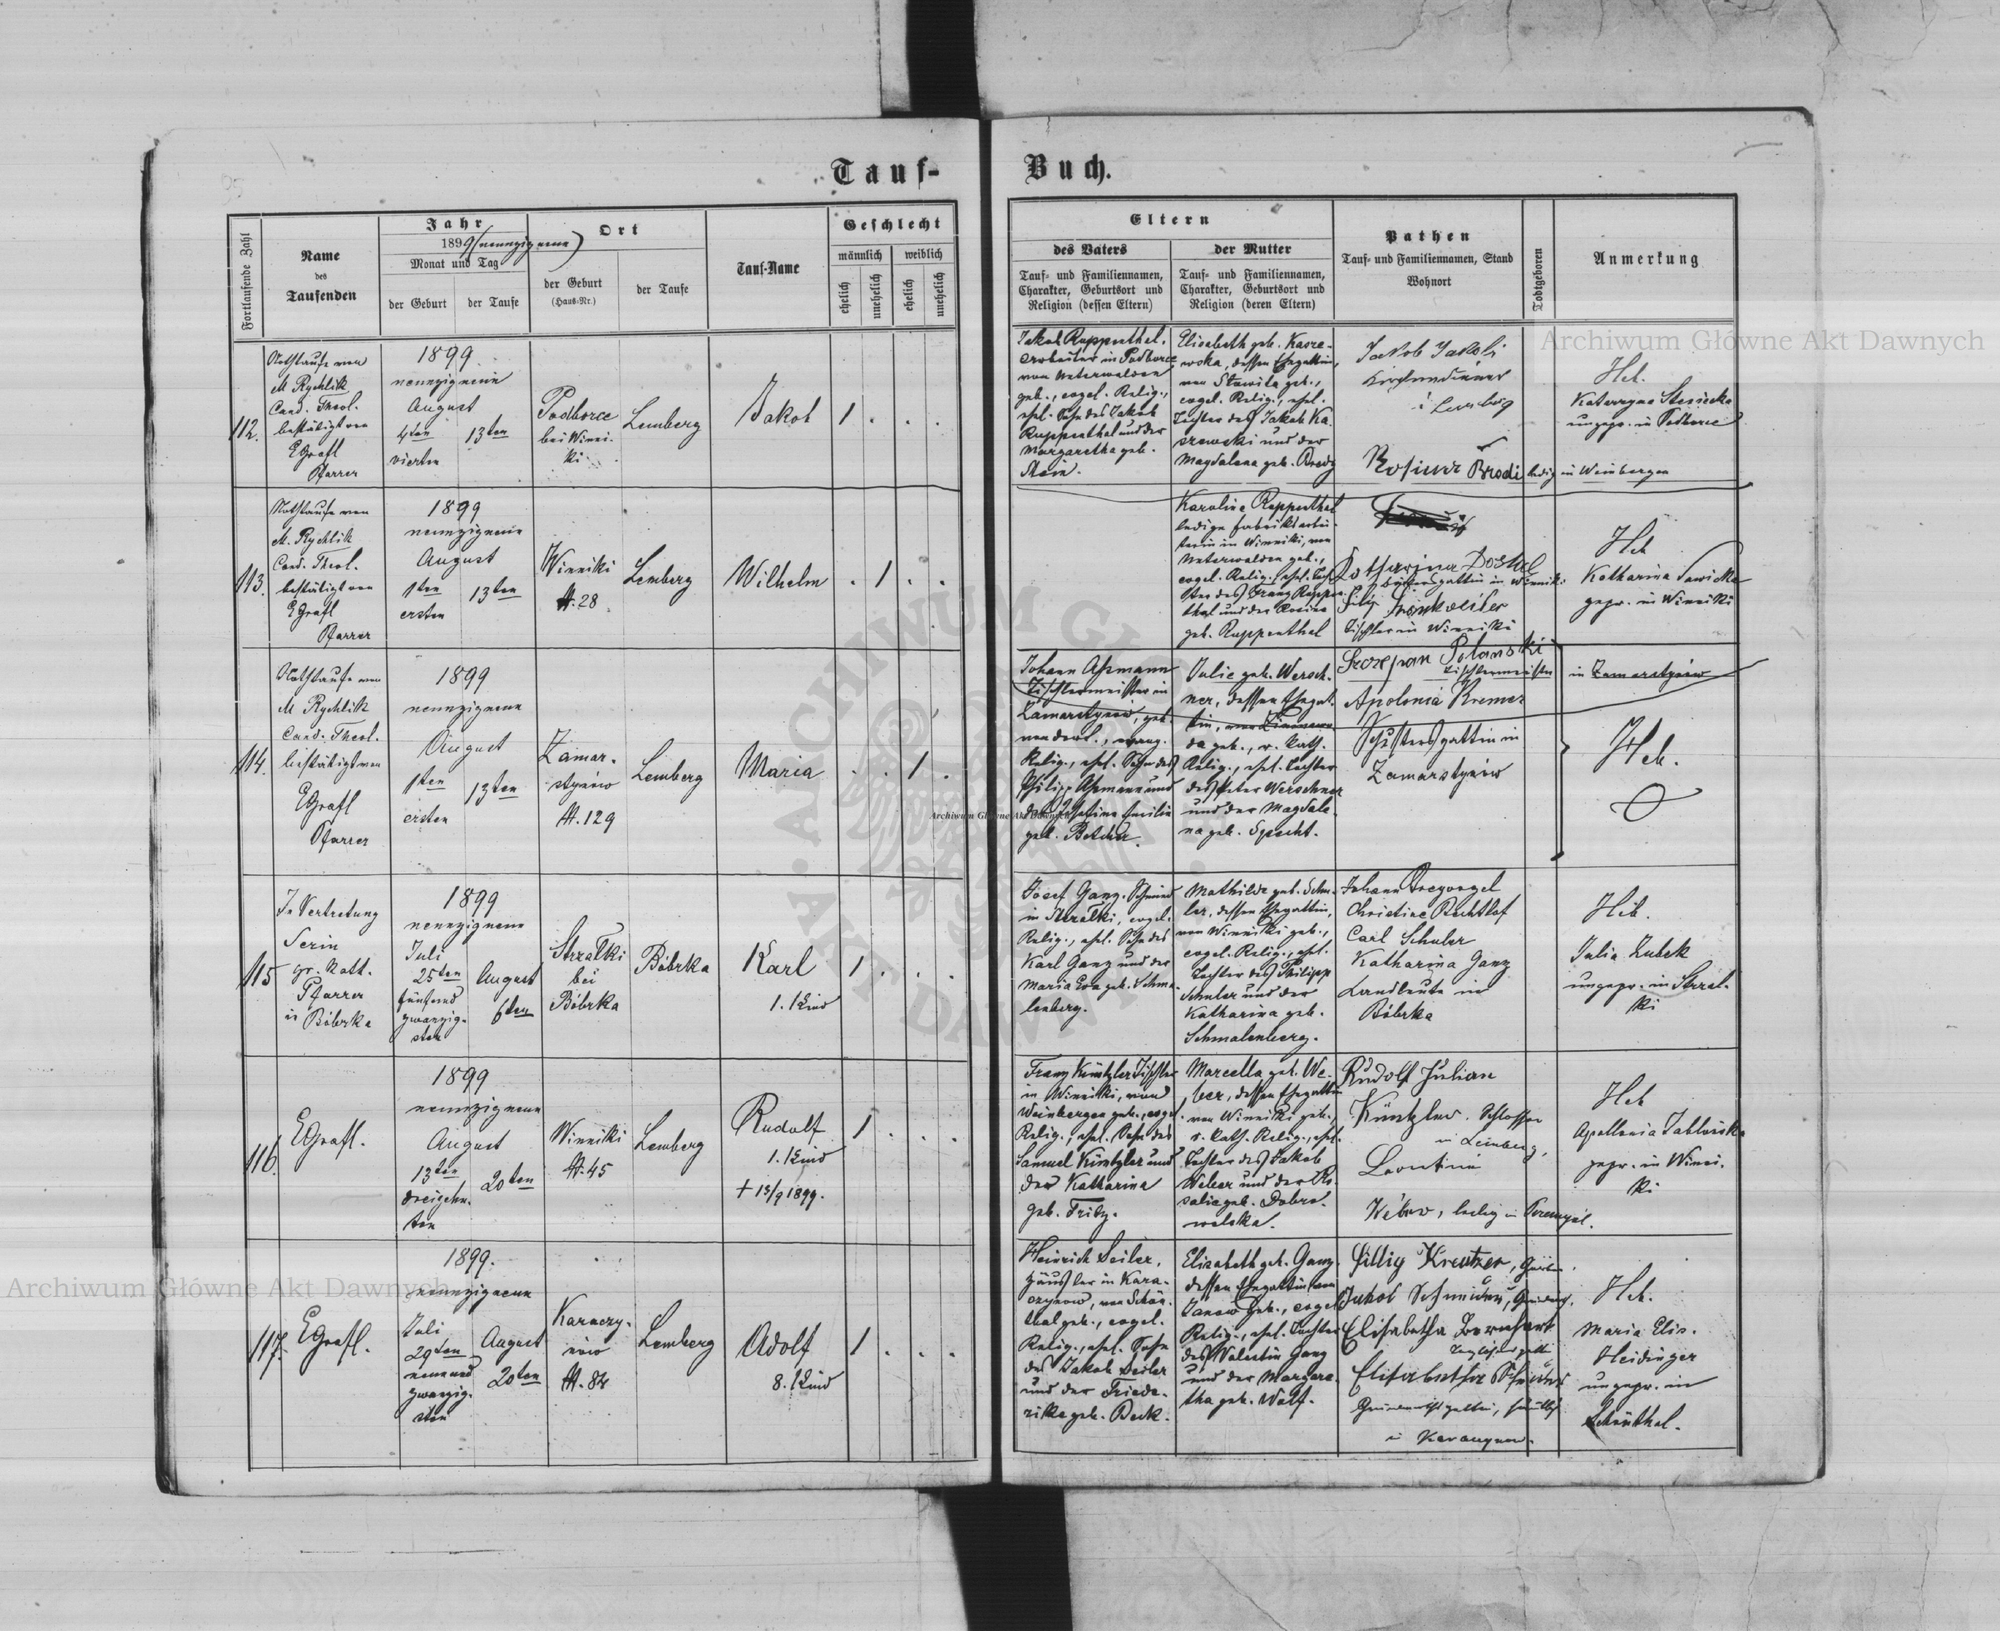 Tauf-
Buch.
Fortlaufende Zahl
Name
des
Taufenden
Jahr
1899 (neunzigneun)
Monat und Tag
der Geburt
der Taufe
Ort
der Geburt
(Haus-Nr.)
der Taufe
Tauf-Name
Geschlecht
männlich
weiblich
ehelich
unehelich
ehelich
unehelich
Eltern
des Vaters
Tauf- und Familiennamen,
Charakter, Geburtsort und
Religion (dessen Eltern)
der Mutter
Tauf- und Familiennamen,
Charakter, Geburtsort und
Religion (deren Eltern)
Pathen
Tauf- und Familiennamen, Stand
Wohnort
Todtgeboren
Anmerkung
112.
Nothtaufe von
M. Rychlik
Cand. Theol.
bestätigt von
EGrafl
Pfarrer
1899
neunzigneun
August
4ten
vierten
13ten
Podborce
bei Winni-
ki
Lemberg
Jakob
1 . . .
Jakob Ruppenthal,
Arbeiter in Podborce
von Unterwalden
geb., evgel. Relig.,
ehel. Sohn des Jakob
Ruppenthal und der
Margaretha geb.
Stein.
Elisabeth geb. Kasze-
wska, dessen Ehegattin,
von Stawita geb.,
evgel. Relig., ehel.
Tochter des Jakob Ka-
szewski und der
Magdalena geb. Bredy
Jakob Jakobi
Kirchendiener
i Lemberg
Rosina Brodi ledig in Weinbergen
Heb.
Katarzyna Steniecka
ungepr. in Podborce
113.
Nothtaufe von
M. Rychlik
Cand. Theol.
bestätigt von
EGrafl
Pfarrer
1899
neunzigneun
August
1ten
ersten
13ten
Winniki
N. 28
Lemberg
Wilhelm
. 1 . .
Karoline Ruppenthal
ledige Fabriksarbei-
terin in Winniki, von
Unterwalden geb.,
evgel. Relig., ehel. Toch-
ter des Franz Ruppen-
thal und der Rosina
geb. Ruppenthal
Katharina Dostal
gattin in Winniki
Filip
Tischler in Winniki
Heb
Katharina Sawicka
gepr. in Winniki
114.
Nothtaufe von
M Rychlik
Cand. Theol.
bestätigt von
EGrafl
Pfarrer
1899
neunzigneun
August
1ten
ersten
13ten
Zamar-
stynów
N. 129
Lemberg
Maria
. . 1 .
Johann Aßmann
Tischlermeister in
Zamarstynów, geb.
von dort, evang.
Relig., ehel. Sohn des
Philipp Aßmann und
der Josefine Emilie
geb. Betcher.
Julie geb. Wersch-
ner, dessen Ehegat-
tin, von
da geb., r. kath.
Relig., ehel. Tochter
des Peter Werschner
und der Magdale-
na geb. Specht.
Szczepan Polanski
Tischlermeister
in Zamarstynów
Apolonia Kremer
Schustersgattin in
Zamarstynów
Heb.
115
In Vertretung
Serin
gr. kath.
Pfarrer
in Bóbrka
1899
neunzigneun
Juli
25ten
fünfund
zwanzig-
sten
August
6ten
Strzałki
bei
Bóbrka
Bóbrka
Karl
1. Kind
1 . . .
Josef Ganz, Schmied
in Strzałki, evgel.
Relig., ehel. Sohn des
Karl Ganz und der
Maria Eva geb. Schma-
lenberg.
Mathilde geb. Schu-
ler, dessen Ehegattin,
von Winniki geb.,
evgel. Relig., ehel.
Tochter des Philipp
Schuler und der
Katharina geb.
Schmalenberg.
Johann Gregorgel
Christine Bechtlof
Carl Schuler
Katharina Ganz
Landleute in
Bóbrka
Heb.
Julia Zubek
ungepr. in Strzał-
ki
116.
EGrafl.
1899
neunzigneun
August
13ten
dreizehn-
ten
20ten
Winniki
N. 45
Lemberg
Rudolf
1. Kind
+ 15/9 1899.
1 . . .
Franz Küntzler Tischler
in Winniki, von
Weinbergen geb., evgel.
Relig., ehel. Sohn des
Samuel Küntzler und
der Katharina
geb. Fritz.
Marcella geb. We-
ber, dessen Ehegattin
von Winniki geb.,
r. kath. Relig., ehel.
Tochter des Jakob
Weber und der Ro-
salia geb. Dobro-
wolska.
Rudolf Julian
Küntzler, Schlosser
in Lemberg,
Leontine
Weber, ledig in Przemyśl.
Heb
Apollonia Jabłońska
gepr. in Winni-
ki
117.
EGrafl.
1899.
neunzigneun
Juli
29ten
neunund
zwanzig-
sten
August
20ten
Karaczy-
nów
N. 84
Lemberg
Adolf
8. Kind
1 . . .
Heinrich Seiler,
Häusler in Kara-
czynow, von Schön-
thal geb., evgel.
Relig., ehel. Sohn
des Jakob Seiler
und der Friede-
rike geb. Beck.
Elisabeth geb. Ganz
dessen Ehegattin von
Janow geb., evgel
Relig., ehel. Tochter
des Valentin Ganz
und der Margare-
tha geb. Wolf.
Fillig Kreutzer,
Jakob Schneider,
Elisabetha Bernhart
Elisabetha Schneider
in Karaczynow.
Heb.
Maria Elis.
Heidinger
ungepr. in
Schönthal.
Archiwum Główne Akt Dawnych
Archiwum Główne Akt Dawnych
Archiwum Główne Akt Dawnych